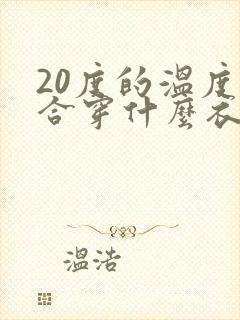 20度的溫度
合穿什麼衣
溫浩